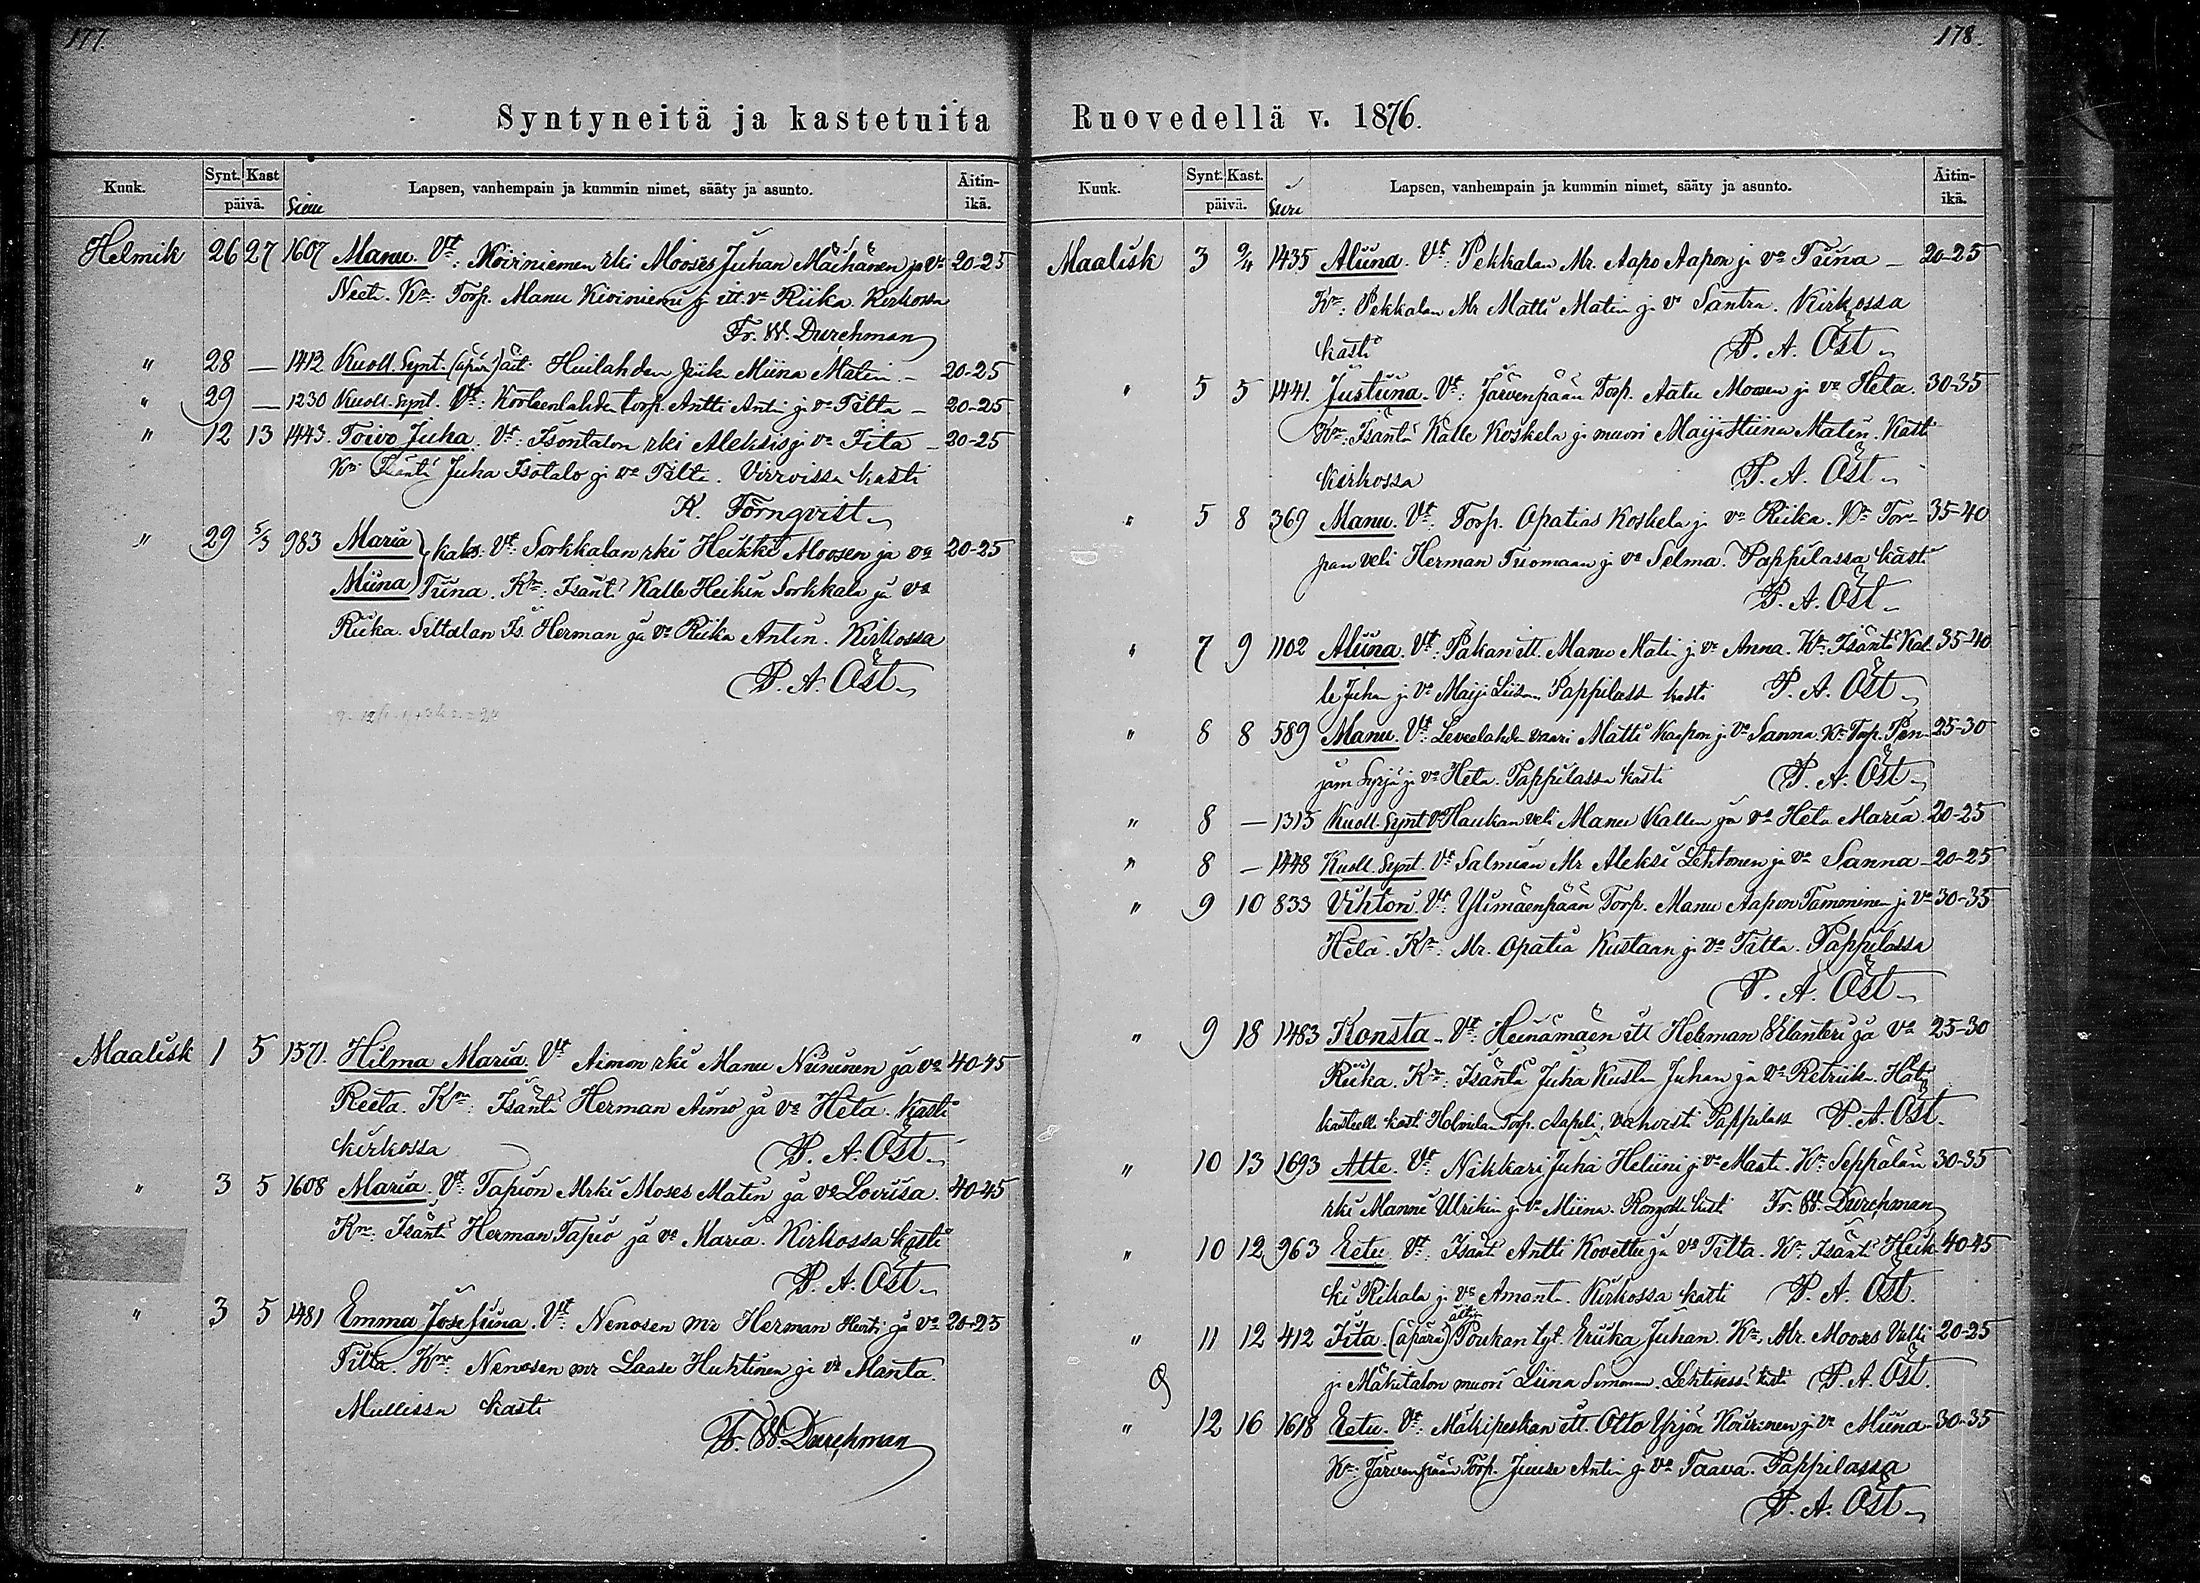 177.
Syntyneitä ja kastetuita
Kuuk. Synt. Kast päivä. Sivu Lapsen, vanhempain ja kummin nimet, sääty ja asunto. Äitin-ikä.
Helmik 26 27 1607 Manu. Vt: Koiviniemen rki Mooses Juhan Mäihänen ja va 20-25
Neeti. Km: Torp. Manu Kiviniemi ja itt. va Riika. Kirkossa
Fr. W. Durchman
" 28 — 1412 Kuoll. Synt. (äpärä) äiti Huilahden piika Miina Matin — 20-25
" 29 — 1230 Kuoll. Synt. Vt: Korteenlahden torp. Antti Antin ja va Tilta — 20-25
" 12 13 1443. Toivo Juha. Vt. Isontalon rki Aleksis ja va Fita — 20-25
Km Isäntä Juha Isotalo ja va Tilta. Virroissa kasti
K. Förnqvist
" 29 5/3 983 Maria } kaks: Vt: Sorkkalan rki Heikki Moosen ja va 20-25
Miina } Tiina. Km: Isäntä Kalle Heikin Sorkkala ja va
Riika. Siltalan Is. Herman ja va Riika Antin. Kirkossa
P. A. Öst
Maalisk 1 5 1571. Hilma Maria. Vt Aimon rki Manu Niininen ja va 40-45
Reeta. Km: Isäntä Herman Aimo ja va Heta. Kasti
kirkossa P. A. Öst
" 3 5 1608 Maria. Vt: Tapion Mrki Moses Matin ja va Lovisa. 40-45
Km: Isäntä Herman Tapio ja va Maria. Kirkossa kasti
P. A. Öst
" 3 5 1481 Emma Josefiina. Vt: Nenosen mr Herman ja va 20-25
Tilta. Km: Nenosen mr Laase Huhtinen ja va Manta.
Mullissa kasti
Fr. W. Durchman
178.
Ruovedellä v. 1876.
Kuuk. Synt. Kast. päivä. Sivu Lapsen, vanhempain ja kummin nimet, sääty ja asunto. Äitin-ikä.
Maalisk 3 9/4 1435 Aliina. Vt: Pekkalan Mr. Aapo Aapon ja va Tiina — 20-25
Km: Pekkalan Mr Matti Matin ja va Santra. Kirkossa
kasti P. A. Öst
" 5 5 1441. Justiina. Vt: Järvenpään Torp. Aatu Moosen ja va Heta. 30-35
Km: Isäntä Kalle Koskela ja muori Maija Stiina Matin. Kasti
kirkossa P. A. Öst
" 5 8 369 Manu. Vt: Torp. Opatias Koskela ja va Riika. Km Tor- 35-40
pan veli Herman Tuomaan ja va Selma. Pappilassa kasti
P. A. Öst
" 7 9 1102 Aliina. Vt: Pakan itt. Manu Matin ja va Anna. Km Isäntä Kal- 35-40
le Juhan ja va Maija Liisa. Pappilass kasti P. A. Öst
" 8 8 589 Manu. Vt: Leveelahden vaari Matti Kaapon ja va Sanna. Km Torp. Pen- 25-30
jam Syrjä ja va Heta. Pappilassa kasti P. A. Öst
" 8 — 1315 Kuoll. Synt. Vt Haukan veli Manu Kallen ja va Heta Maria. 20-25
" 8 — 1448 Kuoll. Synt. Vt Salmian Mr Aleksi Lehtonen ja va Sanna — 20-25
" 9 10 833 Vihtori. Vt: Ylimäenpään Torp. Manu Aapon Tamminen ja va 30-35
Heta. Km: Mr. Opatia Kustaan ja va Tilta. Pappilassa
P. A. Öst
" 9 18 1483 Konsta. Vt: Heinämäen itt Herman Elanteri ja va 25-30
Riika. Km: Isäntä Juha Kustan Juhan ja va Retriika. Hätä
kasteella kast. Holmilan Torp. Aapeli, vahvisti Pappilass P. A. Öst.
" 10 13 1693 Atte. Vt: Nikkari Juha Heliini ja va Mast. Km Seppälän 30-35
rki Manne Ulrikin ja va Miina. kasti Fr. W. Durchman
" 10 12 963 Eetu. Vt. Isänt Antti Kovettu ja va Tilta. Km: Isäntä Heik- 40-45
ki Rihala ja va Amanta. Kirkossa kasti P. A. Öst.
" 11 12 412 Fita. (äpärä) äiti Poukan tyt. Eriika Juhan. Km. Mr. Mooses Valli 20-25
ja Mäkitalon muori Liina Simonan. kasti P. A. Öst.
" 12 16 1618 Eetu. Vt: Mäkipeskan itt. Otto Yrjön Kourinen ja va Miina 30-35
Km: Järvenpään Torp. Juuse Antin ja va Taava. Pappilassa
P. A. Öst